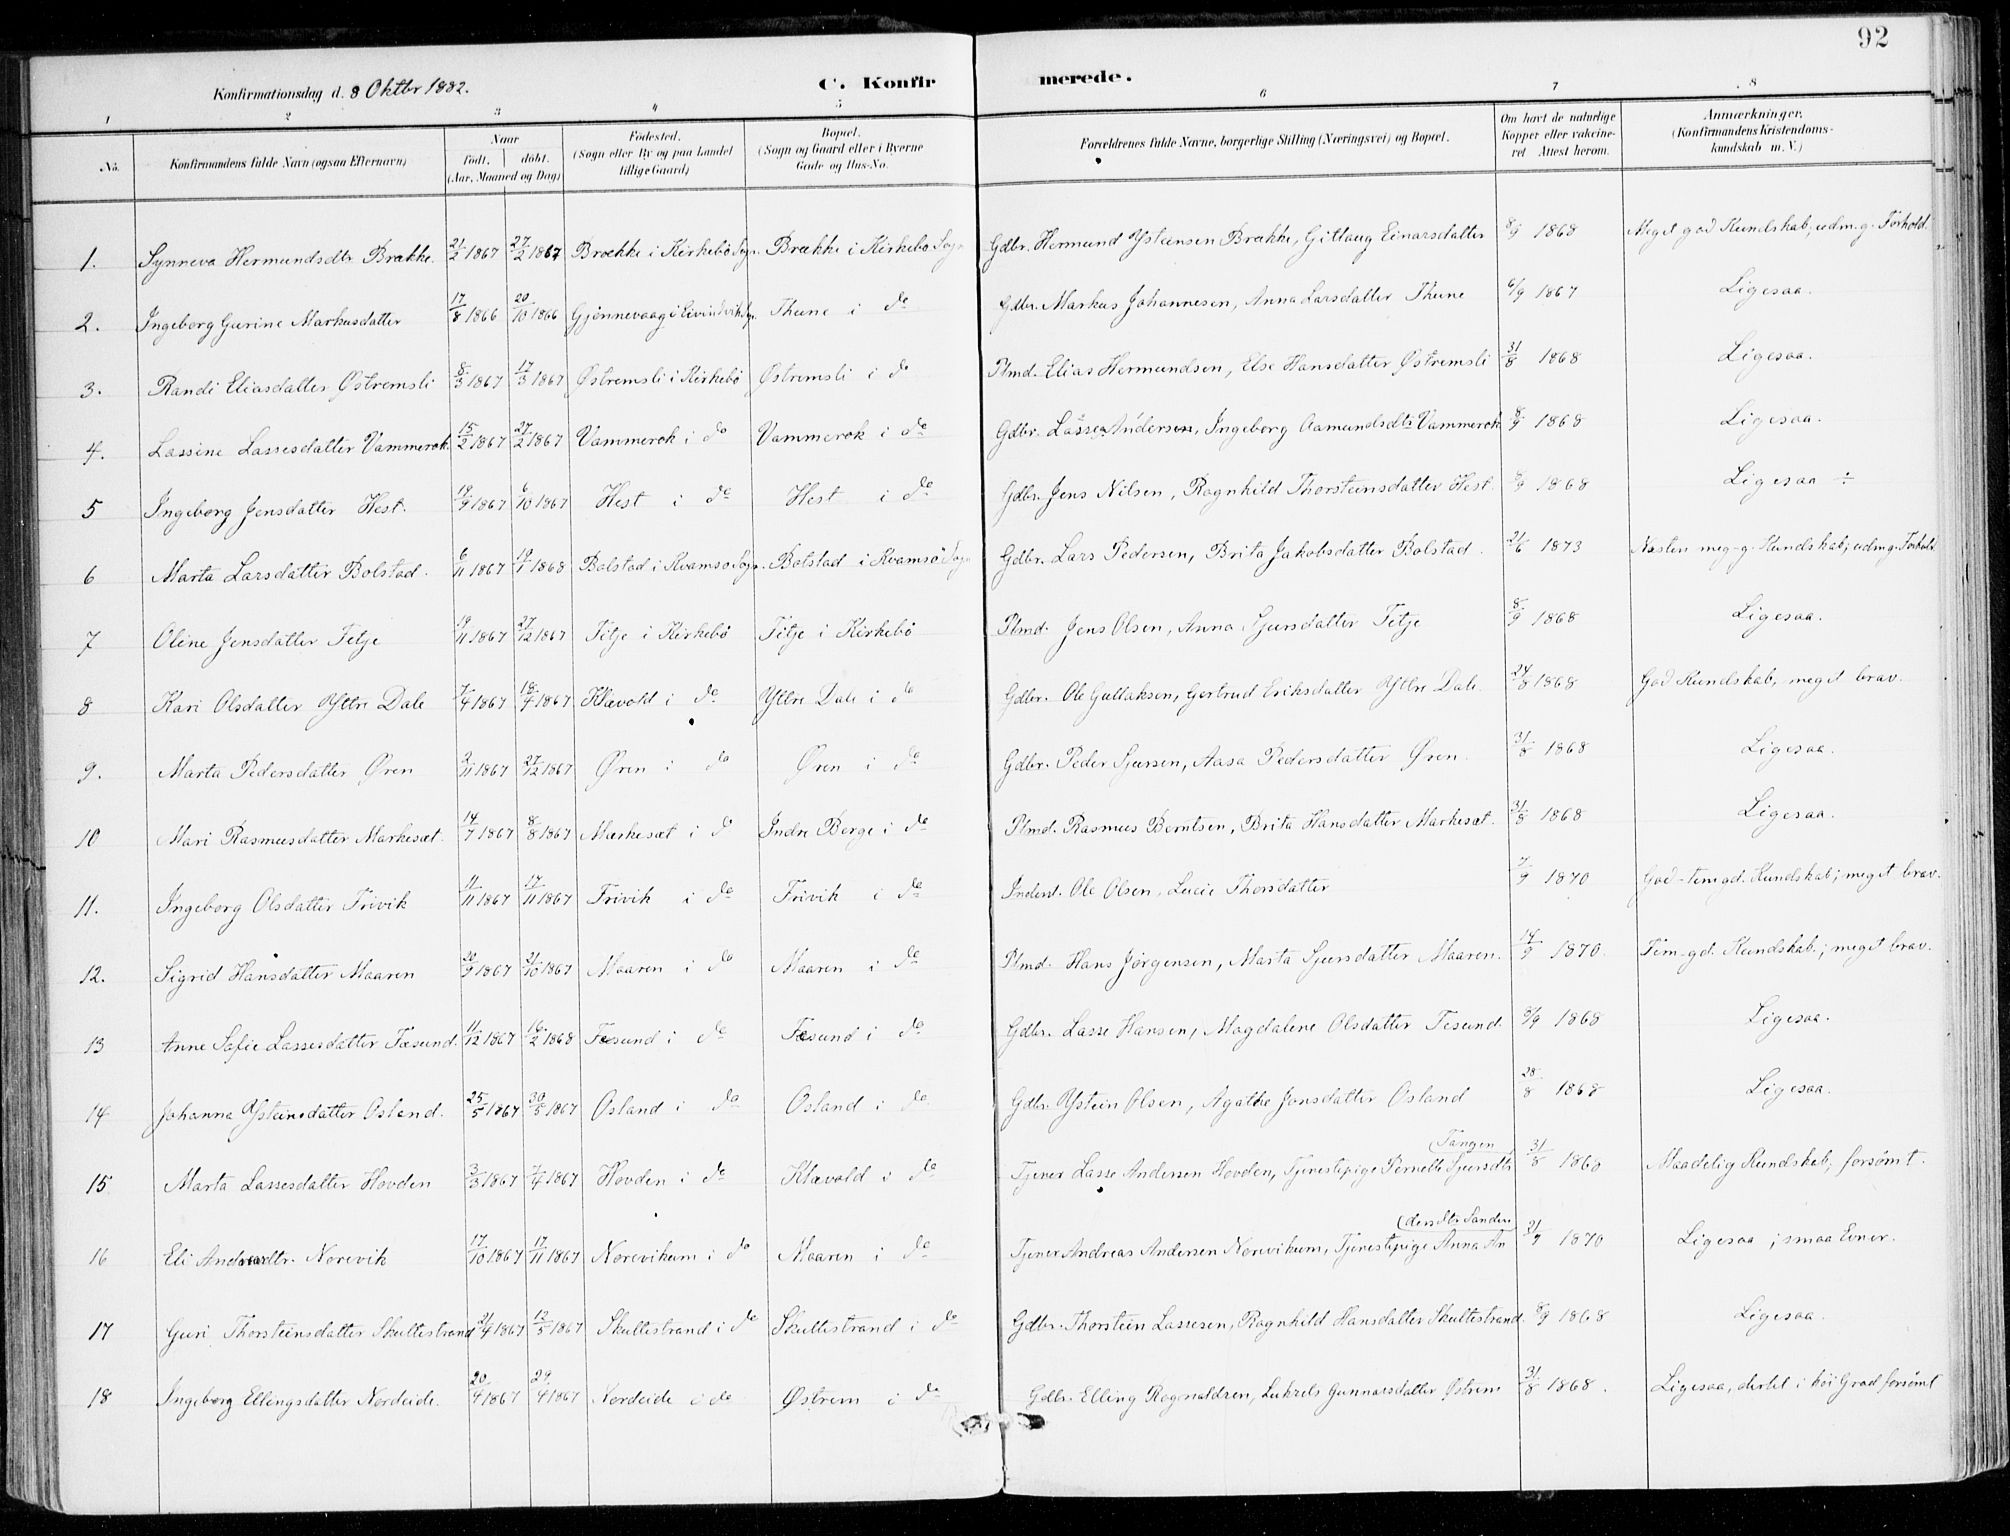 92
Konfirmationsdag d. 8 Oktbr 1882.
C. Konfirmerede.
1 2 3 4 5 6 7 8
No. Konfirmandens fulde Navn (ogsaa Efternavn) Naar født. døbt. (Aar, Maaned og Dag) Fødested. (Sogn eller By og paa Landet tillige Gaard) Bopæl. (Sogn og Gaard eller i Byerne Gade og Hus-No. Forældrenes fulde Navne, borgerlige Stilling (Næringsvei) og Bopæl. Om havt de naturlige Kopper eller vakcineret Attest herom. Anmærkninger. (Konfirmandens Kristendomskundskab m. V.)
1. Synneva Hermundsdtr Brække. 21/2 1867 27/2 1867 Brække i Kirkebø Sogn Brække i Kirkebø Sogn Gdbr. Hermund Ysteinsen Brække, Gitlaug Einarsdatter 8/9 1868 Meget god Kundskab, udm. g. Forhold.
2. Ingeborg Gurine Markusdatter 17/8 1866 20/10 1866 Gjønnevaag i Eivindvik Sgn. Thune i do Gdbr. Markus Johannesen, Anna Larsdatter Thune 6/9 1867 Ligesaa.
3. Randi Eliasdatter Østremsli 8/3 1867 17/3 1867 Østremsli i Kirkebø Østremsli i do Plmd. Elias Hermundsen, Else Hansdatter Østremsli 31/8 1868 Ligesaa.
4. Lassine Lassesdatter Vammerok. 15/2 1867 27/2 1867 Vammerok i do Vammerok i do Gdbr. Lasse Andersen, Ingeborg Aamundsdtr Vammerok 8/9 1868 Ligesaa.
5 Ingeborg Jensdatter Hest. 19/9 1867 6/10 1867 Hest i do Hest i do Gdbr. Jens Nilsen, Ragnhild Thorsteinsdatter Hest. 8/9 1868 Ligesaa ÷
6 Marta Larsdatter Bolstad. 6/11 1867 19/1 1868 Bolstad i Kvamsø Sogn. Bolstad i Kvamsø Sogn Gdbr. Lars Pedersen, Brita Jakobsdatter Bolstad. 21/6 1873 Næsten meg. g. Kundskab; udm g. Forhold
7 Oline Jensdatter Fetje 19/11 1867 27/12 1867 Fetje i Kirkebø Fetje i Kirkebø Plmd. Jens Olsen, Anna Sjursdatter Fetje 8/9 1868 Ligesaa.
8 Kari Olsdatter Yttre Dale 7/4 1867 18/4 1867 Klævold i do Yttre Dale i do Gdbr. Ole Gullaksen, Gertrud Eriksdatter Yttre Dale 24/8 1868 God Kundskab, meget brav.
9. Marta Pedersdatter Øren 2/11 1867 27/12 1867 Øren i do Øren i do Gdbr. Peder Sjursen, Aasa Pedersdatter Øren. 31/8 1868 Ligesaa.
10 Mari Rasmusdatter Markesæt. 14/7 1867 8/8 1867 Markesæt i do Indre Berge i do Plmd. Rasmus Berntsen, Brita Hansdatter Markesæt. 31/8 1868 Ligesaa.
11. Ingeborg Olsdatter Frivik 11/11 1867 17/11 1867 Frivik i do Frivik i do Inderst. Ole Olsen, Lucie Thorsdatter 7/9 1870 God-tem gd. Kundskab; meget brav.
12. Sigrid Hansdatter Maaren 20/9 1867 21/10 1867 Maaren i do Maaren i do Plmd. Hans Jørgensen, Marta Sjursdatter Maaren. 14/9 1870. Tem-gd. Kundskab.; meget brav.
13 Anne Sofie Lassesdatter Tæsund. 11/12 1867 16/2 1868 Tæsund i do Tæsund i do Gdbr. Lasse Hansen, Magdalene Olsdatter Tesund. 8/9 1868 Ligesaa.
14 Johanna Ysteinsdatter Osland. 25/5 1867 30/5 1867 Osland i do Osland i do Gdbr. Ystein Olsen, Agathe Jonsdatter Osland 28/8 1868 Ligesaa.
15 Marta Lassesdatter Hovden 3/3 1867 7/4 1867 Hovden i do Klævold i do Tjener Lasse Andersen Hovden, Tjenestepige Pernelle Sjursdtr (Tangen 31/8 1868 Maadelig Kundskab; forsømt.
16 Eli Andreasdtr. Norevik 17/10 1867 17/11 1867 Norevikum i do Maaren i do Tjener Andreas Andersen Norevikum, Tjenestepige Anna An (dersdtr Sande 21/9 1870 Ligesaa; smaa Evner.
17 Guri Thorsteinsdatter Skultestrand 21/4 1867 12/5 1867 Skultestrand i do Skultestrand i do Gdbr. Thorstein Lassesen, Ragnhild Hansdatter Skultestrand. 8/9 1868 Ligesaa.
18 Ingeborg Ellingsdatter Nordeide. 20/4 1867 29/4 1867 Nordeide i do Østrem i do Gdbr. Elling Rognaldsen, Lukrets Gunnarsdatter Østrem 31/8 1868. Ligesaa, dertil i høi Grad forsømt